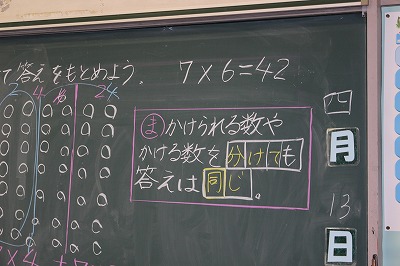 て答えをもとめよう。 7×6=42
4 24
ま かけられる数や
かける数を分けても
答えは同じ。
四
月
13
日